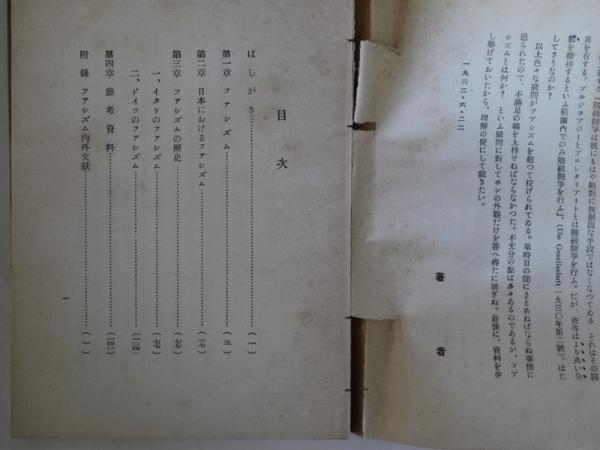 界を有する。ブルジョアジーとプロレタリアートとは階級闘爭を行ふ。だが、彼等はより高い全
體を維持するといふ範圍内でのみ階級闘爭を行ふ』。(Die Gesellschaft 一九三〇年第二號)。はた
してさうなのか？
以上色々な疑問がファシズムを繞つて投げられてゐる。單時日の間にまとめねばならぬ事情に
迫られたので、不滿足の稿を上梓せねばならなかつた。不充分の點は多々あるのであるが、ファ
シズムとは何か？といふ疑問に對してホンの外觀だけを答へ得たに過ぎぬ。最後に、資料を少
し擧げておいたから、理解の便にして戴きたい。
一九三二・六・二二
著者
目次
はしがき……(一)
第一章 ファシズム……(三)
第二章 日本におけるファシズム……(三七)
第三章 ファシズムの歷史……(七七)
一、イタリのファシズム……(七七)
二、ドイツのファシズム……(一〇四)
第四章 參考資料……
附錄 ファシズム内外文獻……(一)
一